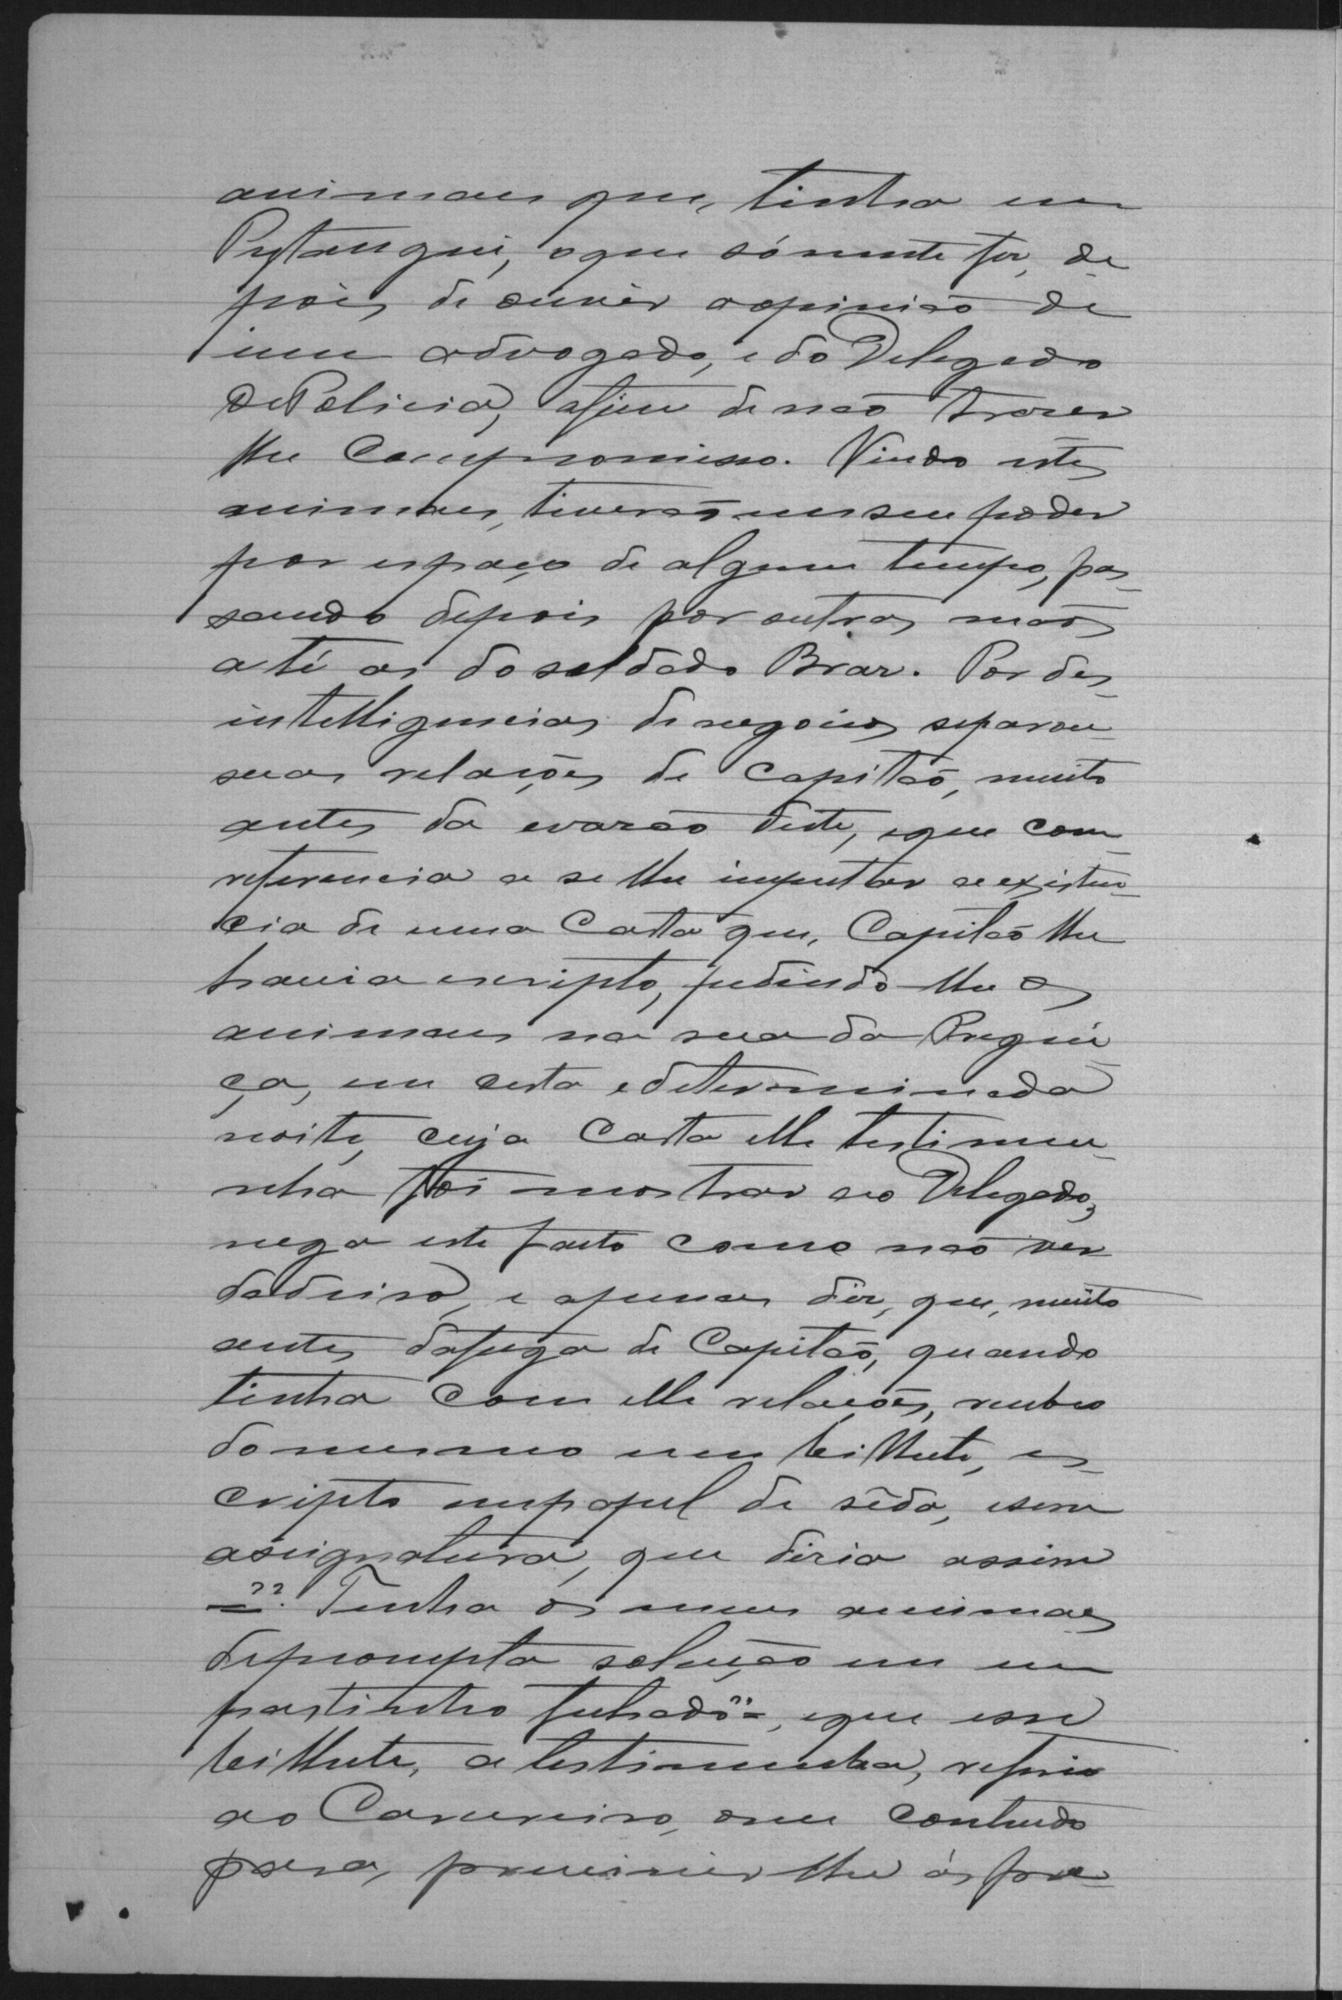 animaes que, tinha em
Pytanguí, o que sómente fez, de
pois, de ouvir a opinião de
um advogado, e do Delegado
de Policia, afim de não trazer
lhe Compromisso. Vindo estes
animaes, tiverão em seu poder
por espaço de algum tempo, pas
sando depois por outras mãos
até as do soldado Braz. Por des
intelligencias de negocios separou
suas relações de Capitão, muito
antes da evazão deste, e que com
referencia a se lhe imputar a existen
cia de uma Carta que, Capitão lhe
havia escripto, pedindo lhe os
animaes na rua da Pregui
ça, em certa e determinada
noite, cuja Carta elle testimu
nha foi mostrar ao Delegado,
nega este facto como não ver
dadeiro, e apenas diz, que, muito
antes da fuga de Capitão, quando
tinha com elle relações, recebeo
do mesmo um bilhete, es
cripto em papel de sêda, e sem
assignatura, que dizia assim
=" Tenha os meus animaes
de prompta solução em um
pastinho fechado"=, e que esse
bilhete, a testimunha, referio
ao Carcereiro, o seu contendo
para, prevenir lhe ás pre